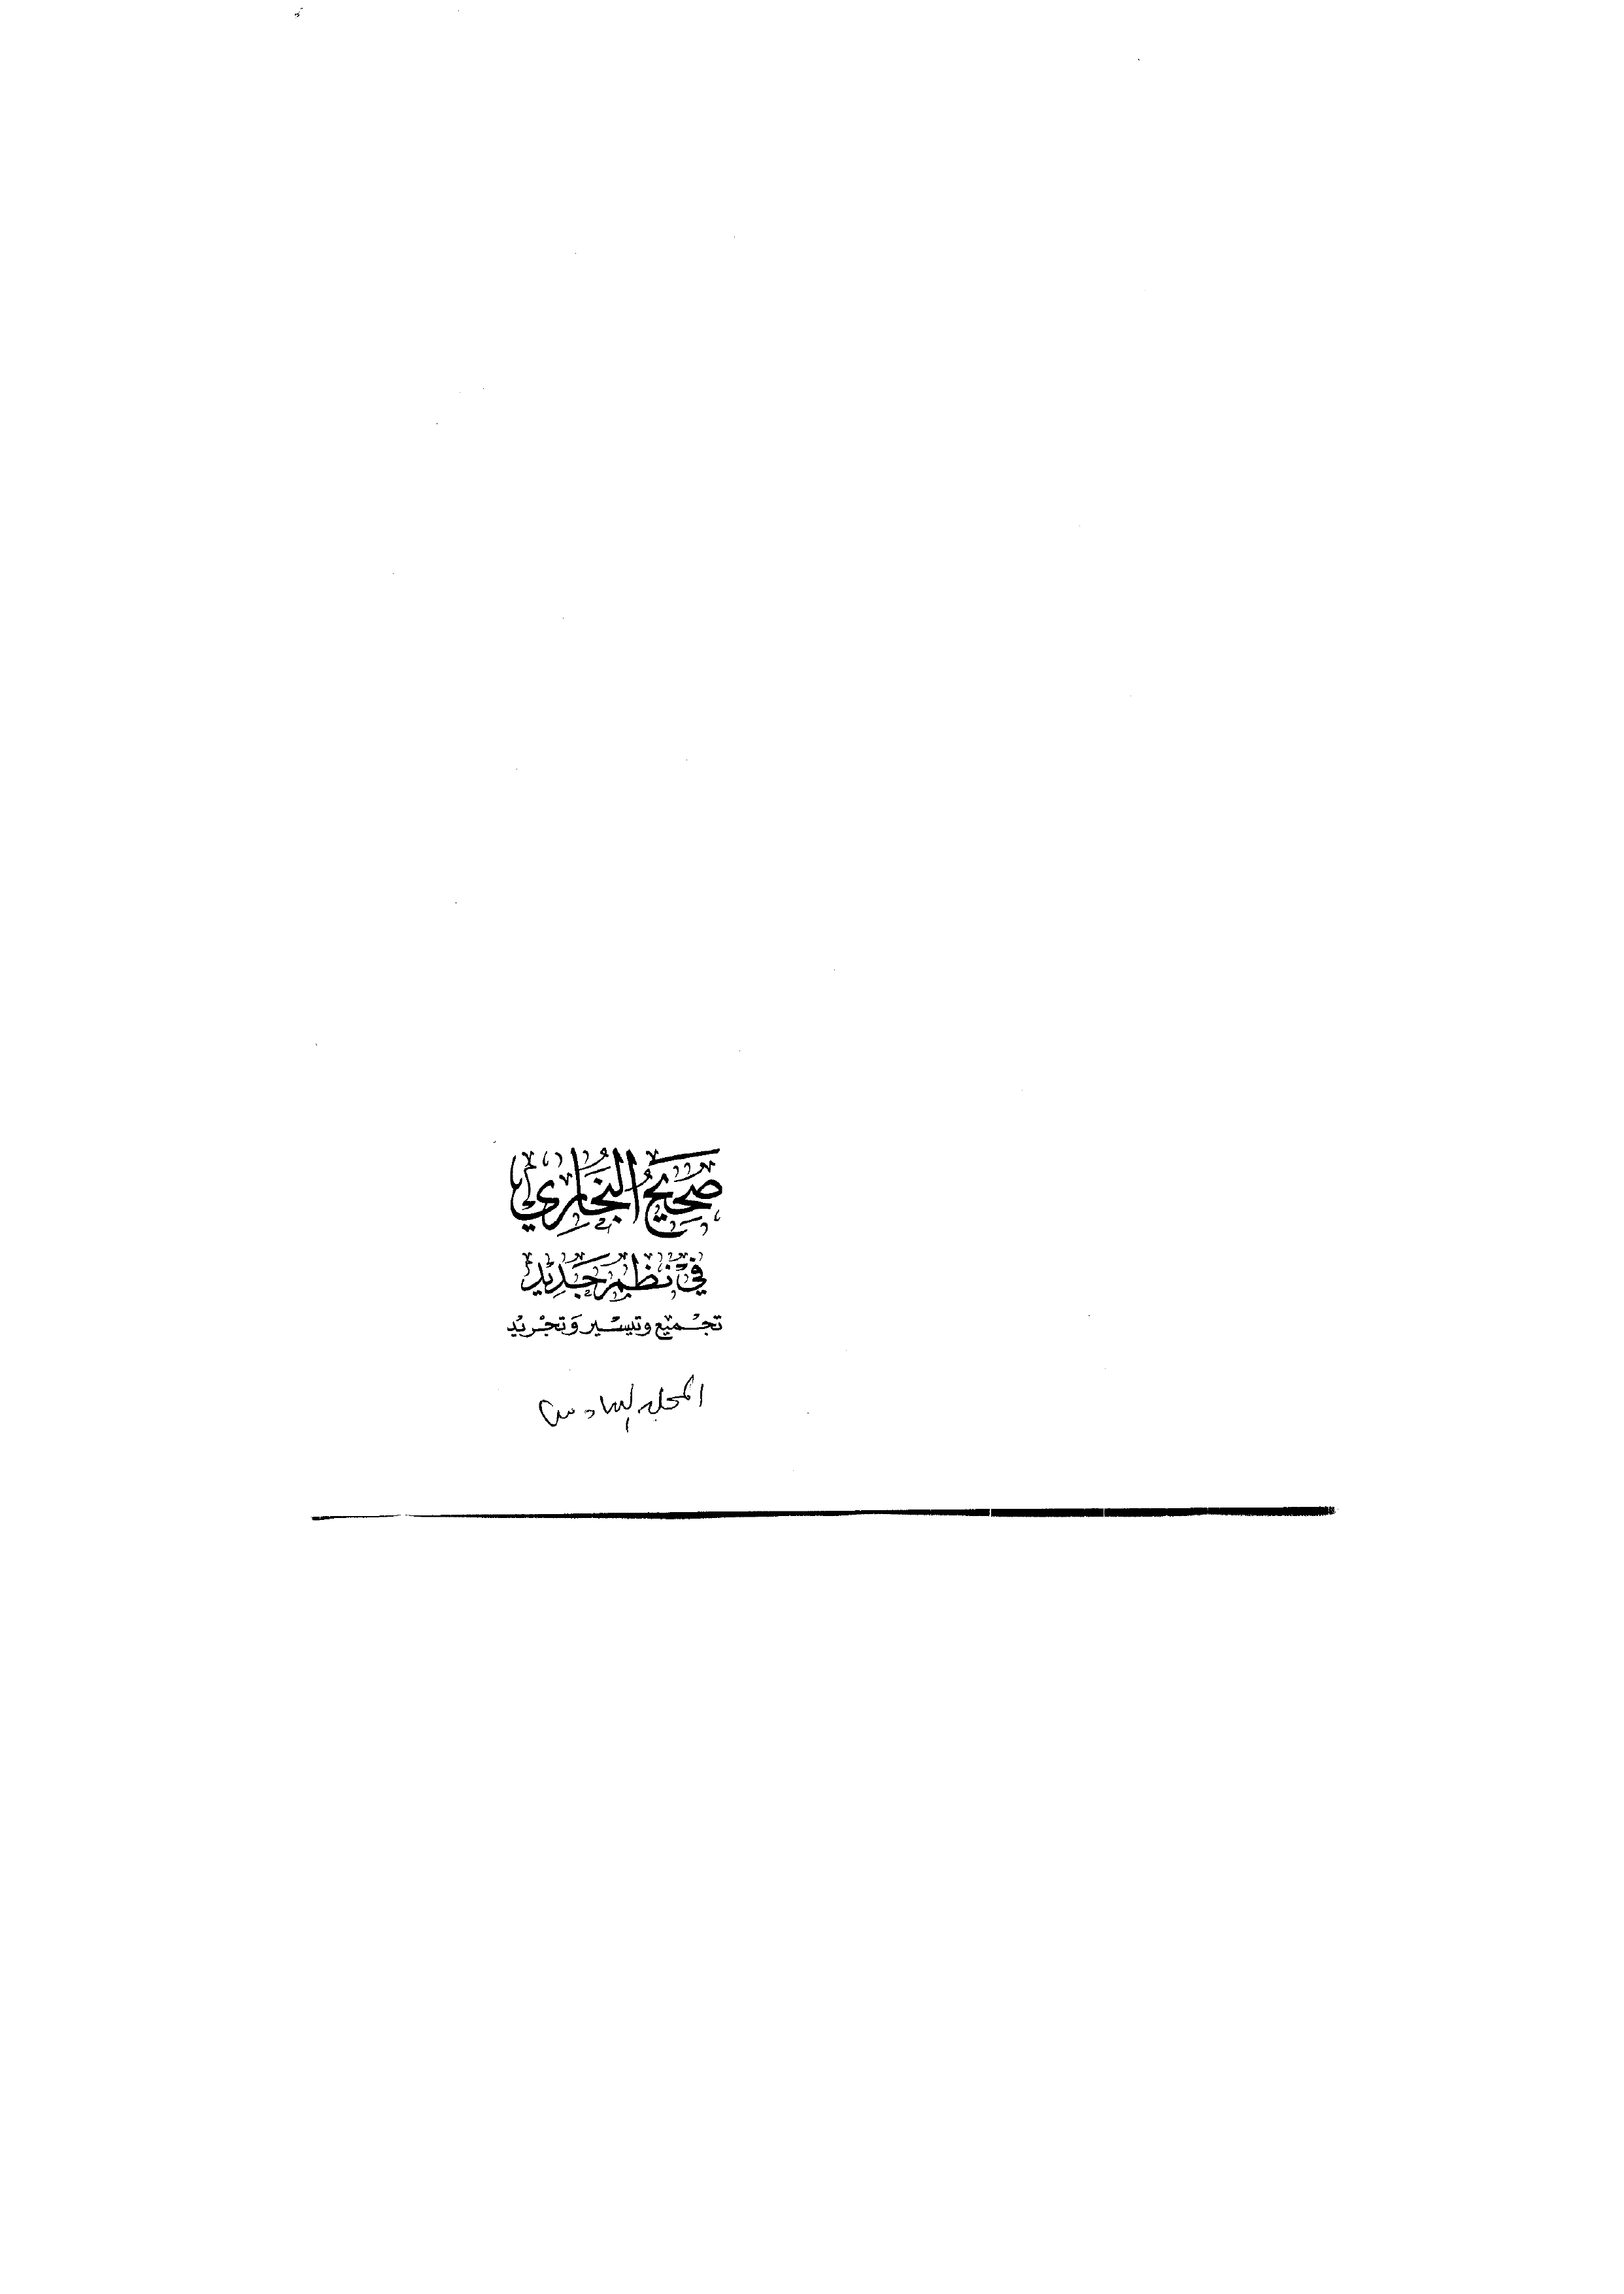 صَحِيحُ البُخَارِيّ
فِي نَظْمٍ جَدِيدٍ
تجْميع وتيسير وَتجْريد
المجلد السادس